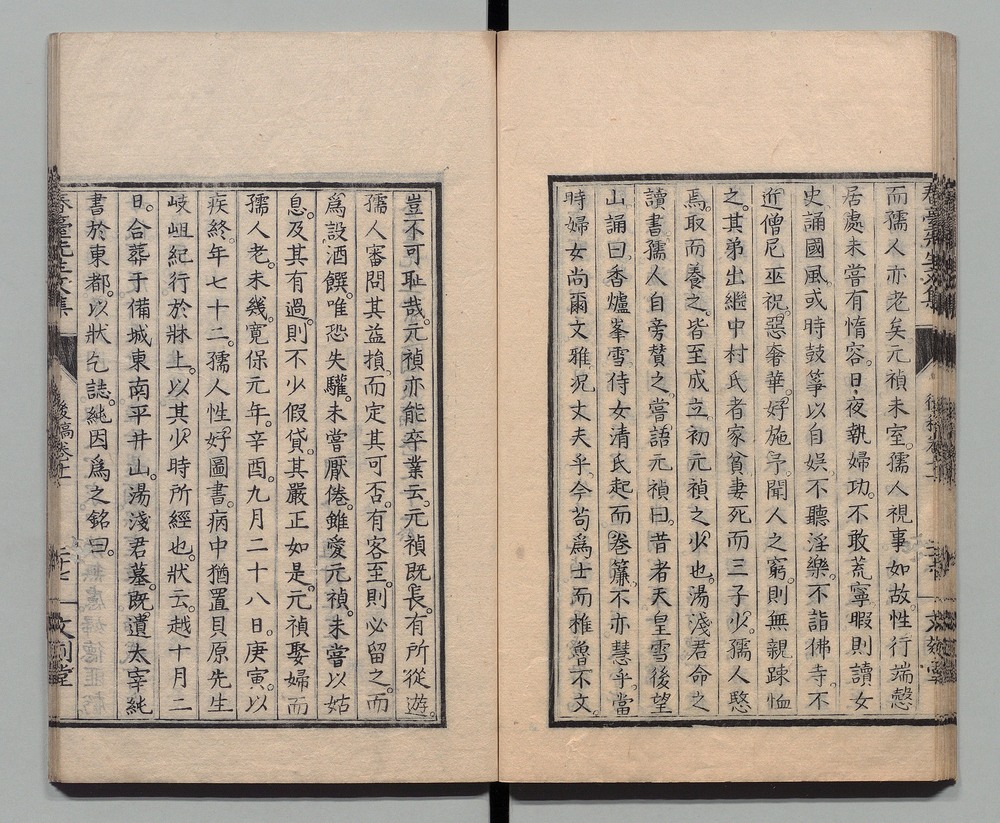 而孺人亦老矣元禎未室孺人視事如故性行端慤
居處未嘗有惰容日夜執婦功不敢荒寧暇則讀女
史誦國風或時鼓箏以自娯不聽淫樂不詣佛寺不
近僧尼巫祝惡奢華好施予聞人之窮則無親踈恤
之其弟出繼中村氏者家貧妻死而三子少孺人愍
焉取而養之皆至成立初元禎之少也湯淺君命之
讀書孺人自旁贊之嘗語元禎曰昔者天皇雪後望
山誦曰香爐峯雪侍女清氏起而卷簾不亦慧乎當
時婦女尚爾文雅况丈夫乎今苟爲士而椎魯不文
豈不可耻哉元禎亦能卒業云元禎既長有所從遊
孺人審問其益損而定其可否有客至則必留之而
爲設酒饌唯恐失驩未嘗厭倦雖愛元禎未嘗以姑
息及其有過則不少假貸其嚴正如是元禎娶婦而
孺人老未幾寛保元年辛酉九月二十八日庚寅以
疾終年七十二孺人性好圖書病中猶置貝原先生
岐岨紀行於牀上以其少時所經也狀云越十月二
日合葬于備城東南平井山湯淺君墓既遺太宰純
書於東都以狀乞誌純因爲之銘曰
春臺先生文集 後稿卷十一 二十七 文刻堂